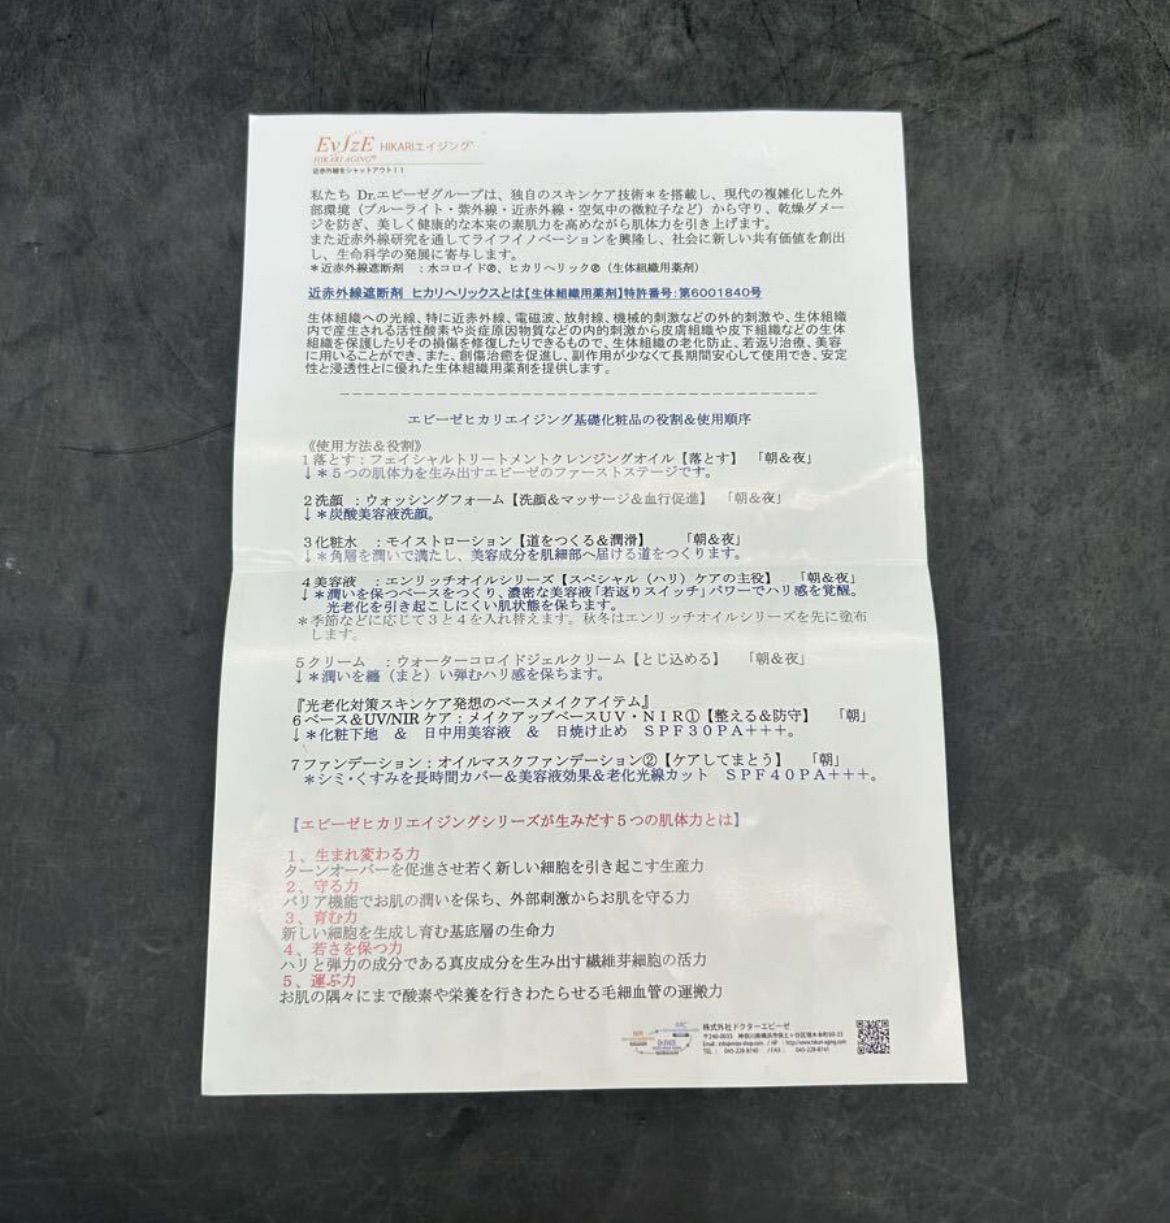 EvizE HIKARIエイジング
HIKARI AGING®
近赤外線をシャットアウト！！
私たち Dr.エビーゼグループは、独自のスキンケア技術＊を搭載し、現代の複雑化した外
部環境（ブルーライト・紫外線・近赤外線・空気中の微粒子など）から守り、乾燥ダメー
ジを防ぎ、美しく健康的な本来の素肌力を高めながら肌体力を引き上げます。
また近赤外線研究を通してライフイノベーションを興隆し、社会に新しい共有価値を創出
し、生命科学の発展に寄与します。
＊近赤外線遮断剤 ：水コロイド®、ヒカリヘリック®（生体組織用薬剤）
近赤外線遮断剤 ヒカリヘリックスとは【生体組織用薬剤】特許番号：第6001840号
生体組織への光線、特に近赤外線、電磁波、放射線、機械的刺激などの外的刺激や、生体組織
内で産生される活性酸素や炎症原因物質などの内的刺激から皮膚組織や皮下組織などの生体
組織を保護したりその損傷を修復したりできるもので、生体組織の老化防止、若返り治療、美容
に用いることができ、また、創傷治癒を促進し、副作用が少なくて長期間安心して使用でき、安定
性と浸透性とに優れた生体組織用薬剤を提供します。
エビーゼヒカリエイジング基礎化粧品の役割＆使用順序
《使用方法＆役割》
１落とす：フェイシャルトリートメントクレンジングオイル【落とす】 「朝＆夜」
↓＊５つの肌体力を生み出すエビーゼのファーストステージです。
２洗顔 ：ウォッシングフォーム【洗顔＆マッサージ＆血行促進】 「朝＆夜」
↓＊炭酸美容液洗顔。
３化粧水 ：モイストローション【道をつくる＆潤滑】 「朝＆夜」
↓＊角層を潤いで満たし、美容成分を肌細部へ届ける道をつくります。
４美容液 ：エンリッチオイルシリーズ【スペシャル（ハリ）ケアの主役】 「朝＆夜」
↓＊潤いを保つベースをつくり、濃密な美容液「若返りスイッチ」パワーでハリ感を覚醒。
光老化を引き起こしにくい肌状態を保ちます。
＊季節などに応じて３と４を入れ替えます。秋冬はエンリッチオイルシリーズを先に塗布
します。
５クリーム ：ウォーターコロイドジェルクリーム【とじ込める】 「朝＆夜」
↓＊潤いを纏（まと）い弾むハリ感を保ちます。
『光老化対策スキンケア発想のベースメイクアイテム』
６ベース＆UV/NIRケア：メイクアップベースＵＶ・ＮＩＲ①【整える＆防守】 「朝」
↓＊化粧下地 ＆ 日中用美容液 ＆ 日焼け止め ＳＰＦ３０ＰＡ＋＋＋。
７ファンデーション：オイルマスクファンデーション②【ケアしてまとう】 「朝」
＊シミ・くすみを長時間カバー＆美容液効果＆老化光線カット ＳＰＦ４０ＰＡ＋＋＋。
【エビーゼヒカリエイジングシリーズが生みだす５つの肌体力とは】
１、生まれ変わる力
ターンオーバーを促進させ若く新しい細胞を引き起こす生産力
２、守る力
バリア機能でお肌の潤いを保ち、外部刺激からお肌を守る力
３、育む力
新しい細胞を生成し育む基底層の生命力
４、若さを保つ力
ハリと弾力の成分である真皮成分を生み出す繊維芽細胞の活力
５、運ぶ力
お肌の隅々にまで酸素や栄養を行きわたらせる毛細血管の運搬力
株式外社ドクターエビーゼ